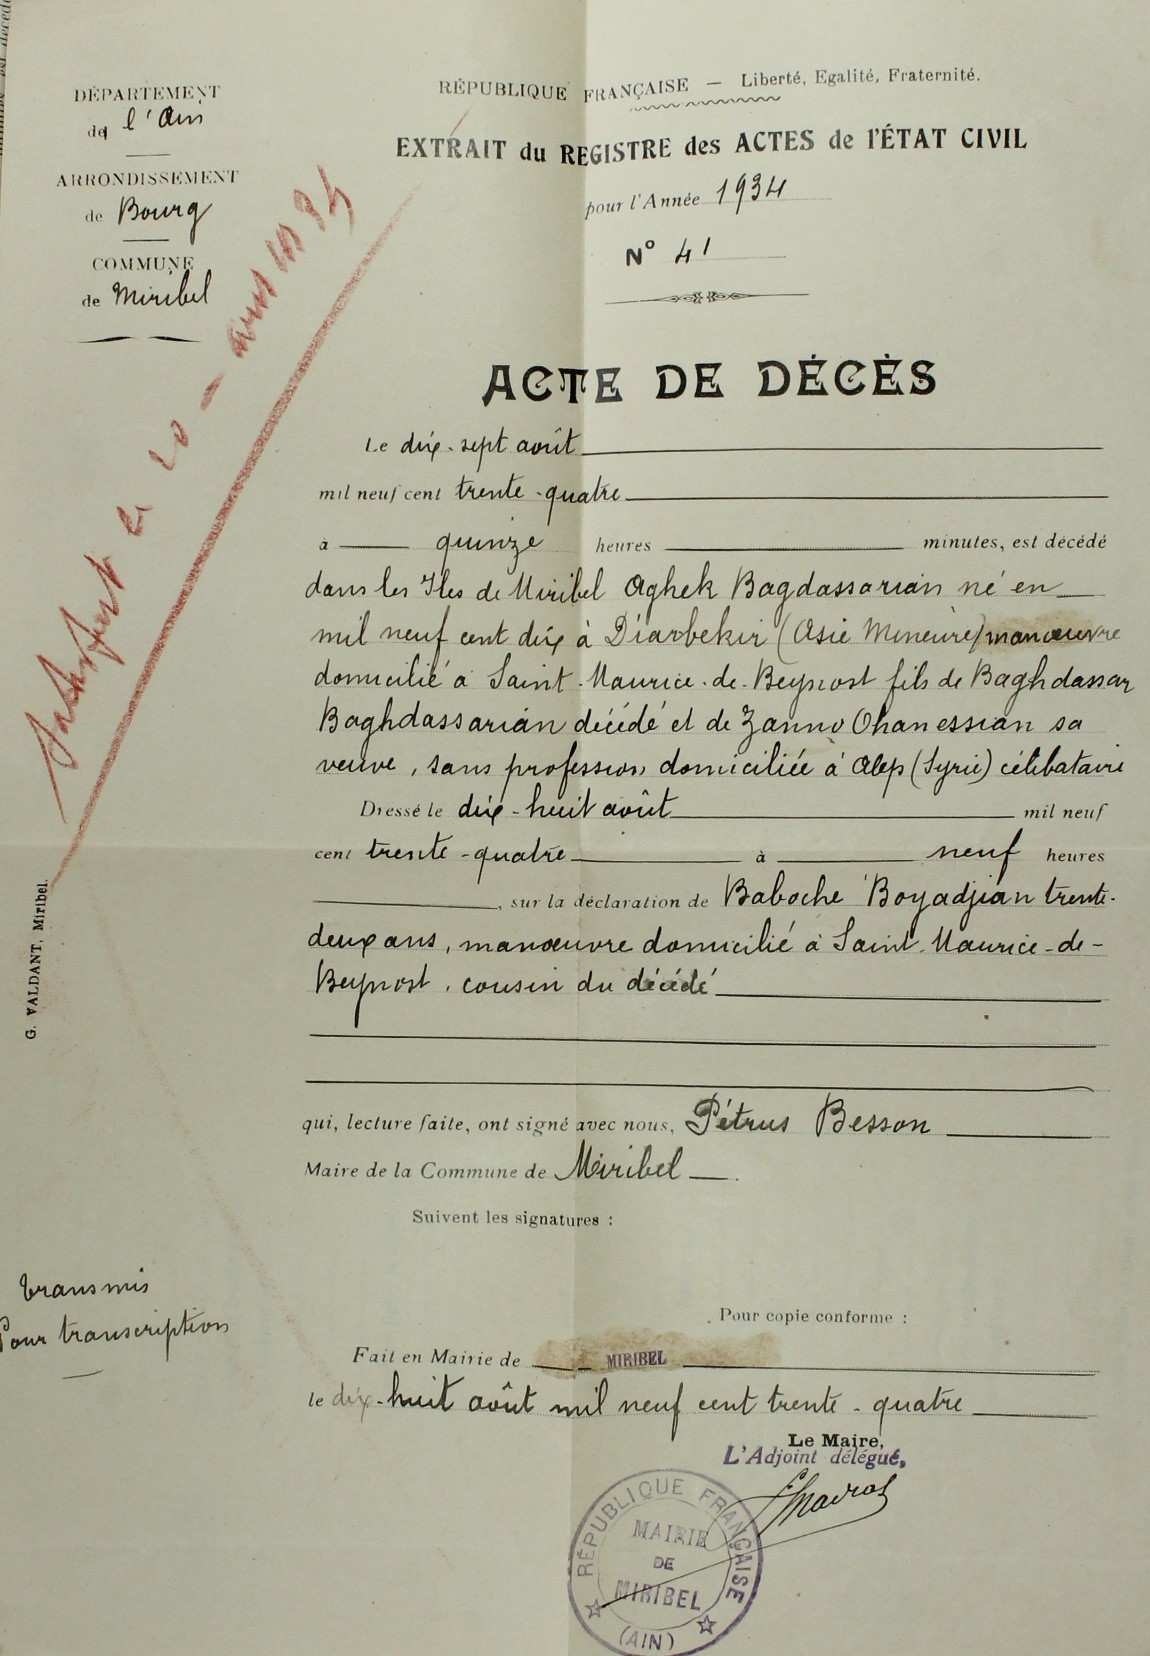 DÉPARTEMENT
de l'Ain
ARRONDISSEMENT
de Bourg
COMMUNE
de Miribel
RÉPUBLIQUE FRANÇAISE — Liberté, Egalité, Fraternité.
EXTRAIT du REGISTRE des ACTES de l'ÉTAT CIVIL
pour l'Année 1934
N° 41
ACTE DE DÉCÈS
Le dix-sept août
mil neuf cent trente-quatre
à quinze heures minutes, est décédé
dans les Iles de Miribel Aghek Bagdassarian né en
mil neuf cent dix à Diarbekir (Asie Mineure) manœuvre
domicilié à Saint-Maurice-de-Beynost fils de Baghdassar
Baghdassarian décédé et de Zanno Ohanessian sa
veuve, sans profession domiciliée à Alep (Syrie) célibataire
Dressé le dix-huit août mil neuf
cent trente-quatre à neuf heures
, sur la déclaration de Baboche Boyadjian trente-
deux ans, manœuvre domicilié à Saint-Maurice-de-
Beynost, cousin du décédé
qui, lecture faite, ont signé avec nous, Pétrus Besson
Maire de la Commune de Miribel
Suivent les signatures :
G. VALDANT, Miribel.
transmis
Pour transcription
Pour copie conforme :
Fait en Mairie de MIRIBEL
le dix-huit août mil neuf cent trente-quatre
Le Maire,
L'Adjoint délégué,
RÉPUBLIQUE FRANÇAISE
MAIRIE
DE
MIRIBEL
(AIN)